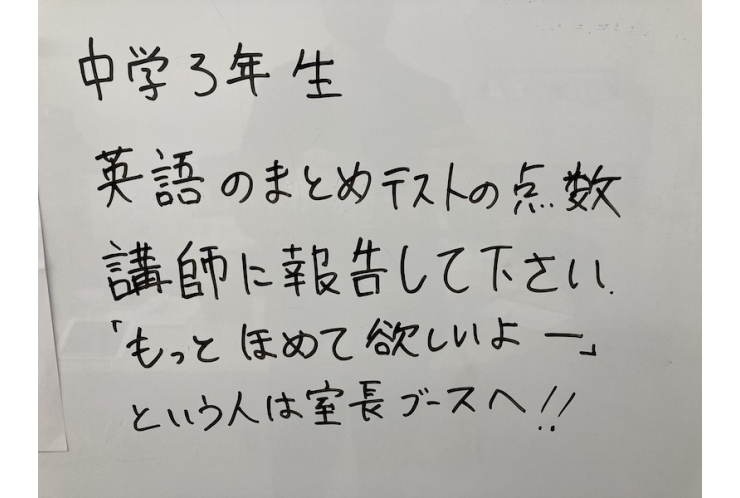 中学3年生
英語のまとめテストの点数
講師に報告して下さい.
「もっとほめて欲しいよー」
という人は室長ブースへ!!